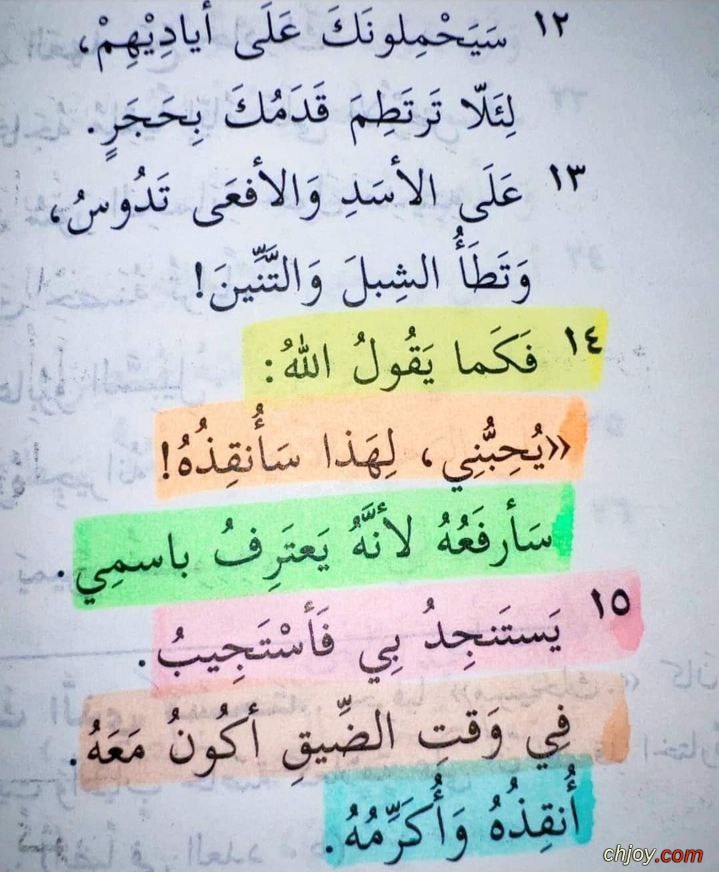 ١٢ سَيَحْمِلونَكَ عَلَى أيادِيْهِمْ،
لِئَلّا تَرتَطِمَ قَدَمُكَ بِحَجَرٍ.
١٣ عَلَى الأسَدِ وَالأفعَى تَدُوسُ،
وَتَطَأُ الشِبلَ وَالتَّنِّينَ!
١٤ فَكَما يَقُولُ اللهُ:
«يُحِبُّنِي، لِهَذا سَأُنقِذُهُ!
سَأرفَعُهُ لأنَّهُ يَعتَرِفُ باسمِي.
١٥ يَستَنجِدُ بِي فَأسْتَجِيبُ.
فِي وَقتِ الضِّيقِ أكُونُ مَعَهُ.
أُنقِذُهُ وَأُكَرِّمُهُ.
chjoy.com